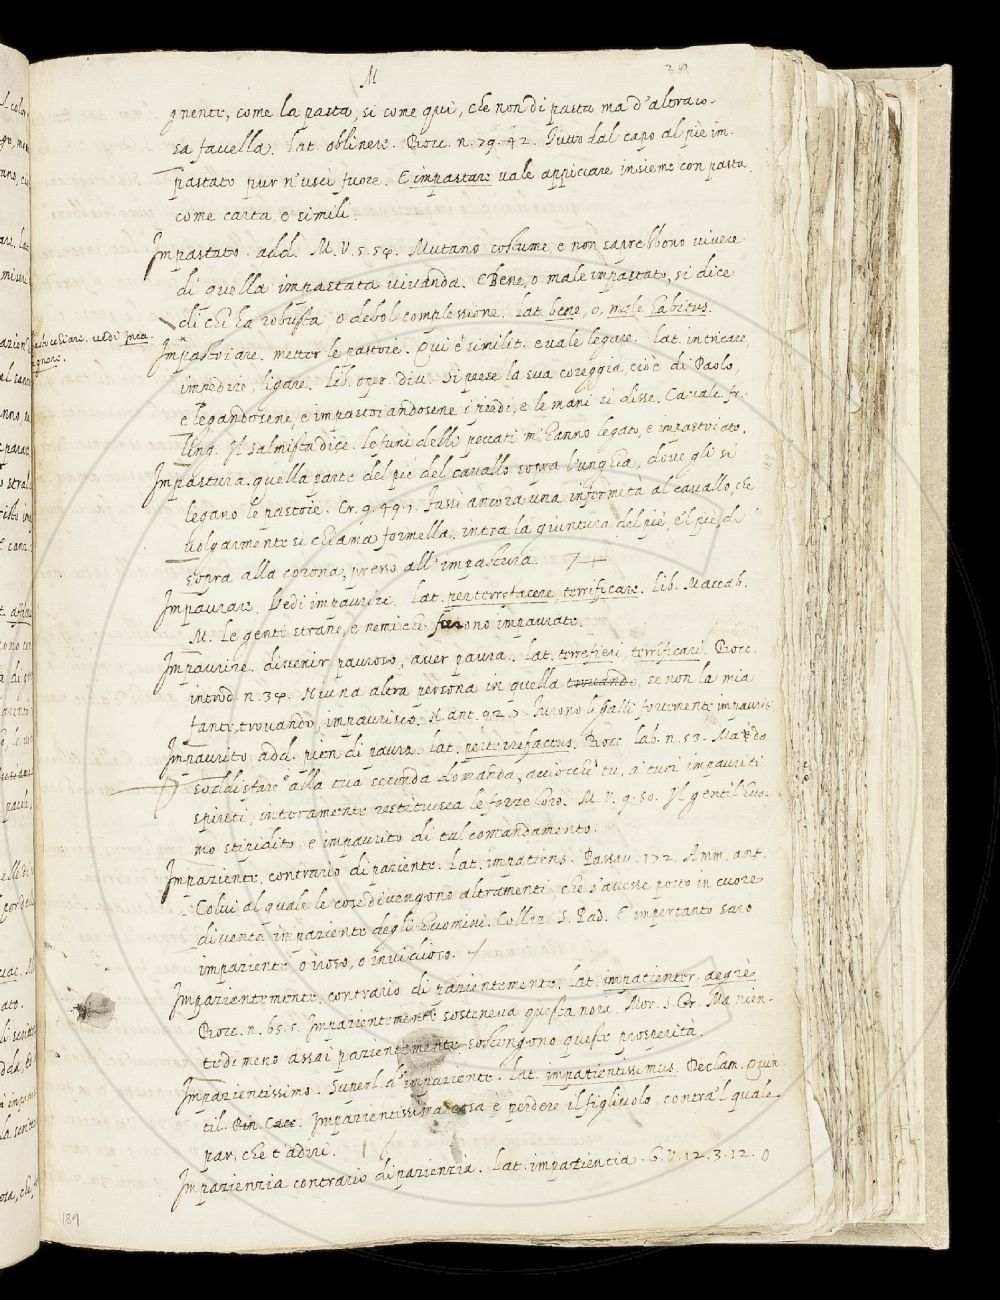 M
gnente, come la pasta, si come quì, che non di pasta ma d'altra co-
sa favella. Lat. oblinere. Bocc. n. 79. 42. Tutto dal capo al piè im-
pastato pur n'uscì fuore. E impastare vale appiciare insieme con pasta,
come carta, e simili.
Impastato. add. M. V. 5. 54. Mutano costume, e non saprebbono vivere
di quella impastata vivanda. E Bene, o male impastato, si dice
di chi ha robusta, o debol complessione. Lat. bene, o, male habitus.
vedi Inca-
Impastoiare. metter le pastoie. Quì è similit. e vale legare. Lat. intricare,
impedire, ligare. Lib. oper. div. Si prese la sua coreggia, cioè di Paolo,
e legandosene, e impastoiandosene i piedi, e le mani si disse. Cavalc. fr.
ling. Il salmista dice. Le funi delli peccati m'hanno legato, e impastoiato.
Impastura. quella parte del piè del cavallo sopra l'unghia, dove gli si
legano le pastoie. Cr. 9. 49. 1. Fassi ancora una infermità al cavallo, che
volgarmente si chiama formella, intra la giuntura del piè, e'l piè, di
sopra alla corona, presso all'impastura.
Impaurare, Vedi impaurire. Lat. perterrefacere, terrificare. Lib. Maccab.
M. Le genti strane, e nemiche furono impaurate.
Impaurire. divenir pauroso, aver paura. Lat. terrefieri, terrificari. Bocc.
introd. n. 34. Niuna altra persona in quella trovando, se non la mia
fante trovando, impaurisco. N. ant. 92. Furono li Galli fortemente impauriti
Impaurito. add. pien di paura. Lat. perterrefactus. Bocc. Lab. n. 53. Ma è do
soddisfare alla tua seconda domanda, acciocchè tu, a' tuoi impauriti
spiriti, interamente restituisca le forze loro. M. V. 9. 50. Il gentil huo-
mo stupidito, e impaurito di tal comandamento.
Impaziente, contrario di paziente. Lat. impatiens. Passav. 172. Amm. ant.
Colui al quale le cose divengono altramenti che s'avesse posto in cuore
diventa impaziente degli huomini. Collaz. S. Pad. E impertanto sarò
impaziente, o iroso, o invidioso.
Impazientemente, contrario di pazientemente. Lat. impatienter, aegrè.
Bocc. n. 65. 5. Impazientemente sosteneva questa noia. Mor. S. Gr. Ma nien-
tedimeno assai pazientemente sostengono queste prosperità.
Impazientissimo. Superl. d'impaziente. Lat. impatientissimus. Declam. Quin
til. Impazientissima cosa è perdere il figliuolo, contra'l quale
par, che t'adire.
Impazienzia contrario di pazienzia. Lat. impatientia. G. V. 12. 3. 12. O
189